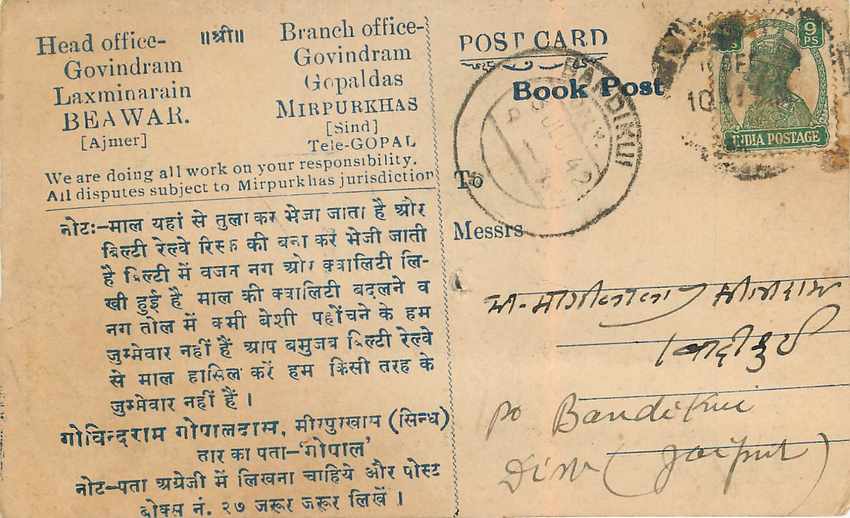 ॥श्री॥
Head office-
Govindram
Laxminarain
BEAWAR.
[Ajmer]
Branch office-
Govindram
Gopaldas
MIRPURKHAS
[Sind]
Tele-GOPAL
We are doing all work on your responsibility.
All disputes subject to Mirpurkhas jurisdiction
नोट:-माल यहां से तुला कर भेजा जाता है और
बिल्टी रेल्वे रिस्क की बना कर भेजी जाती
है बिल्टी में वजन नग और क्वालिटी लि-
खी हुई है माल की क्वालिटी बदलने व
नग तोल में कमी बेशी पहोंचने के हम
जुम्मेवार नहीं हैं आप बमुजब बिल्टी रेल्वे
से माल हासिल करें हम किसी तरह के
जुम्मेवार नहीं हैं ।
गोविन्दराम गोपालदास, मीरपुरखास (सिन्ध)
तार का पता-'गोपाल'
नोट-पता अंग्रेजी में लिखना चाहिये और पोस्ट
बोक्स नं. २७ जरूर जरूर लिखें ।
POST CARD
Book Post
9
PS
INDIA POSTAGE
BANDIKUI
42
To
Messrs
बांदीकुई
Po Bandikui
(Jaipur)